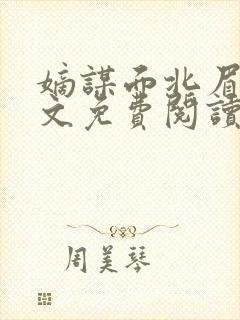 嫡謀而北眉
文免費閱讀
周美琴